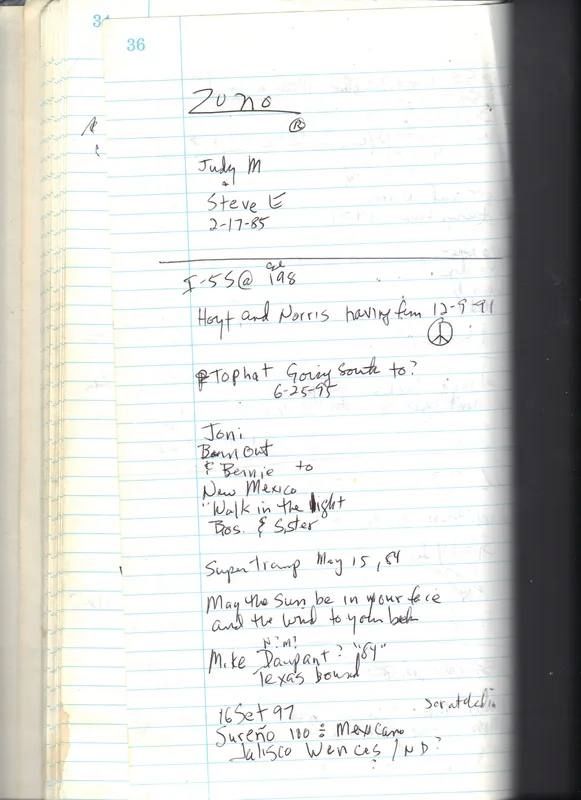 36
Zuno
®
Judy M
+
Steve E
2-17-85
cal
I-5 S @ 198
Hoyt and Norris having fun 12-9-91
Tophat Going South to?
6-25-95
Joni
Burn Out
& Bernie to
New Mexico
"Walk in the light
Bos. & Sister
SuperTramp May 15, 84
May the Sun be in your face
and the wind to your
N?M?
Mike Daupant? "84"
Texas bound
16 Set 97
Sureño 100 % Mexicano
Jalisco Wences / ND?
?